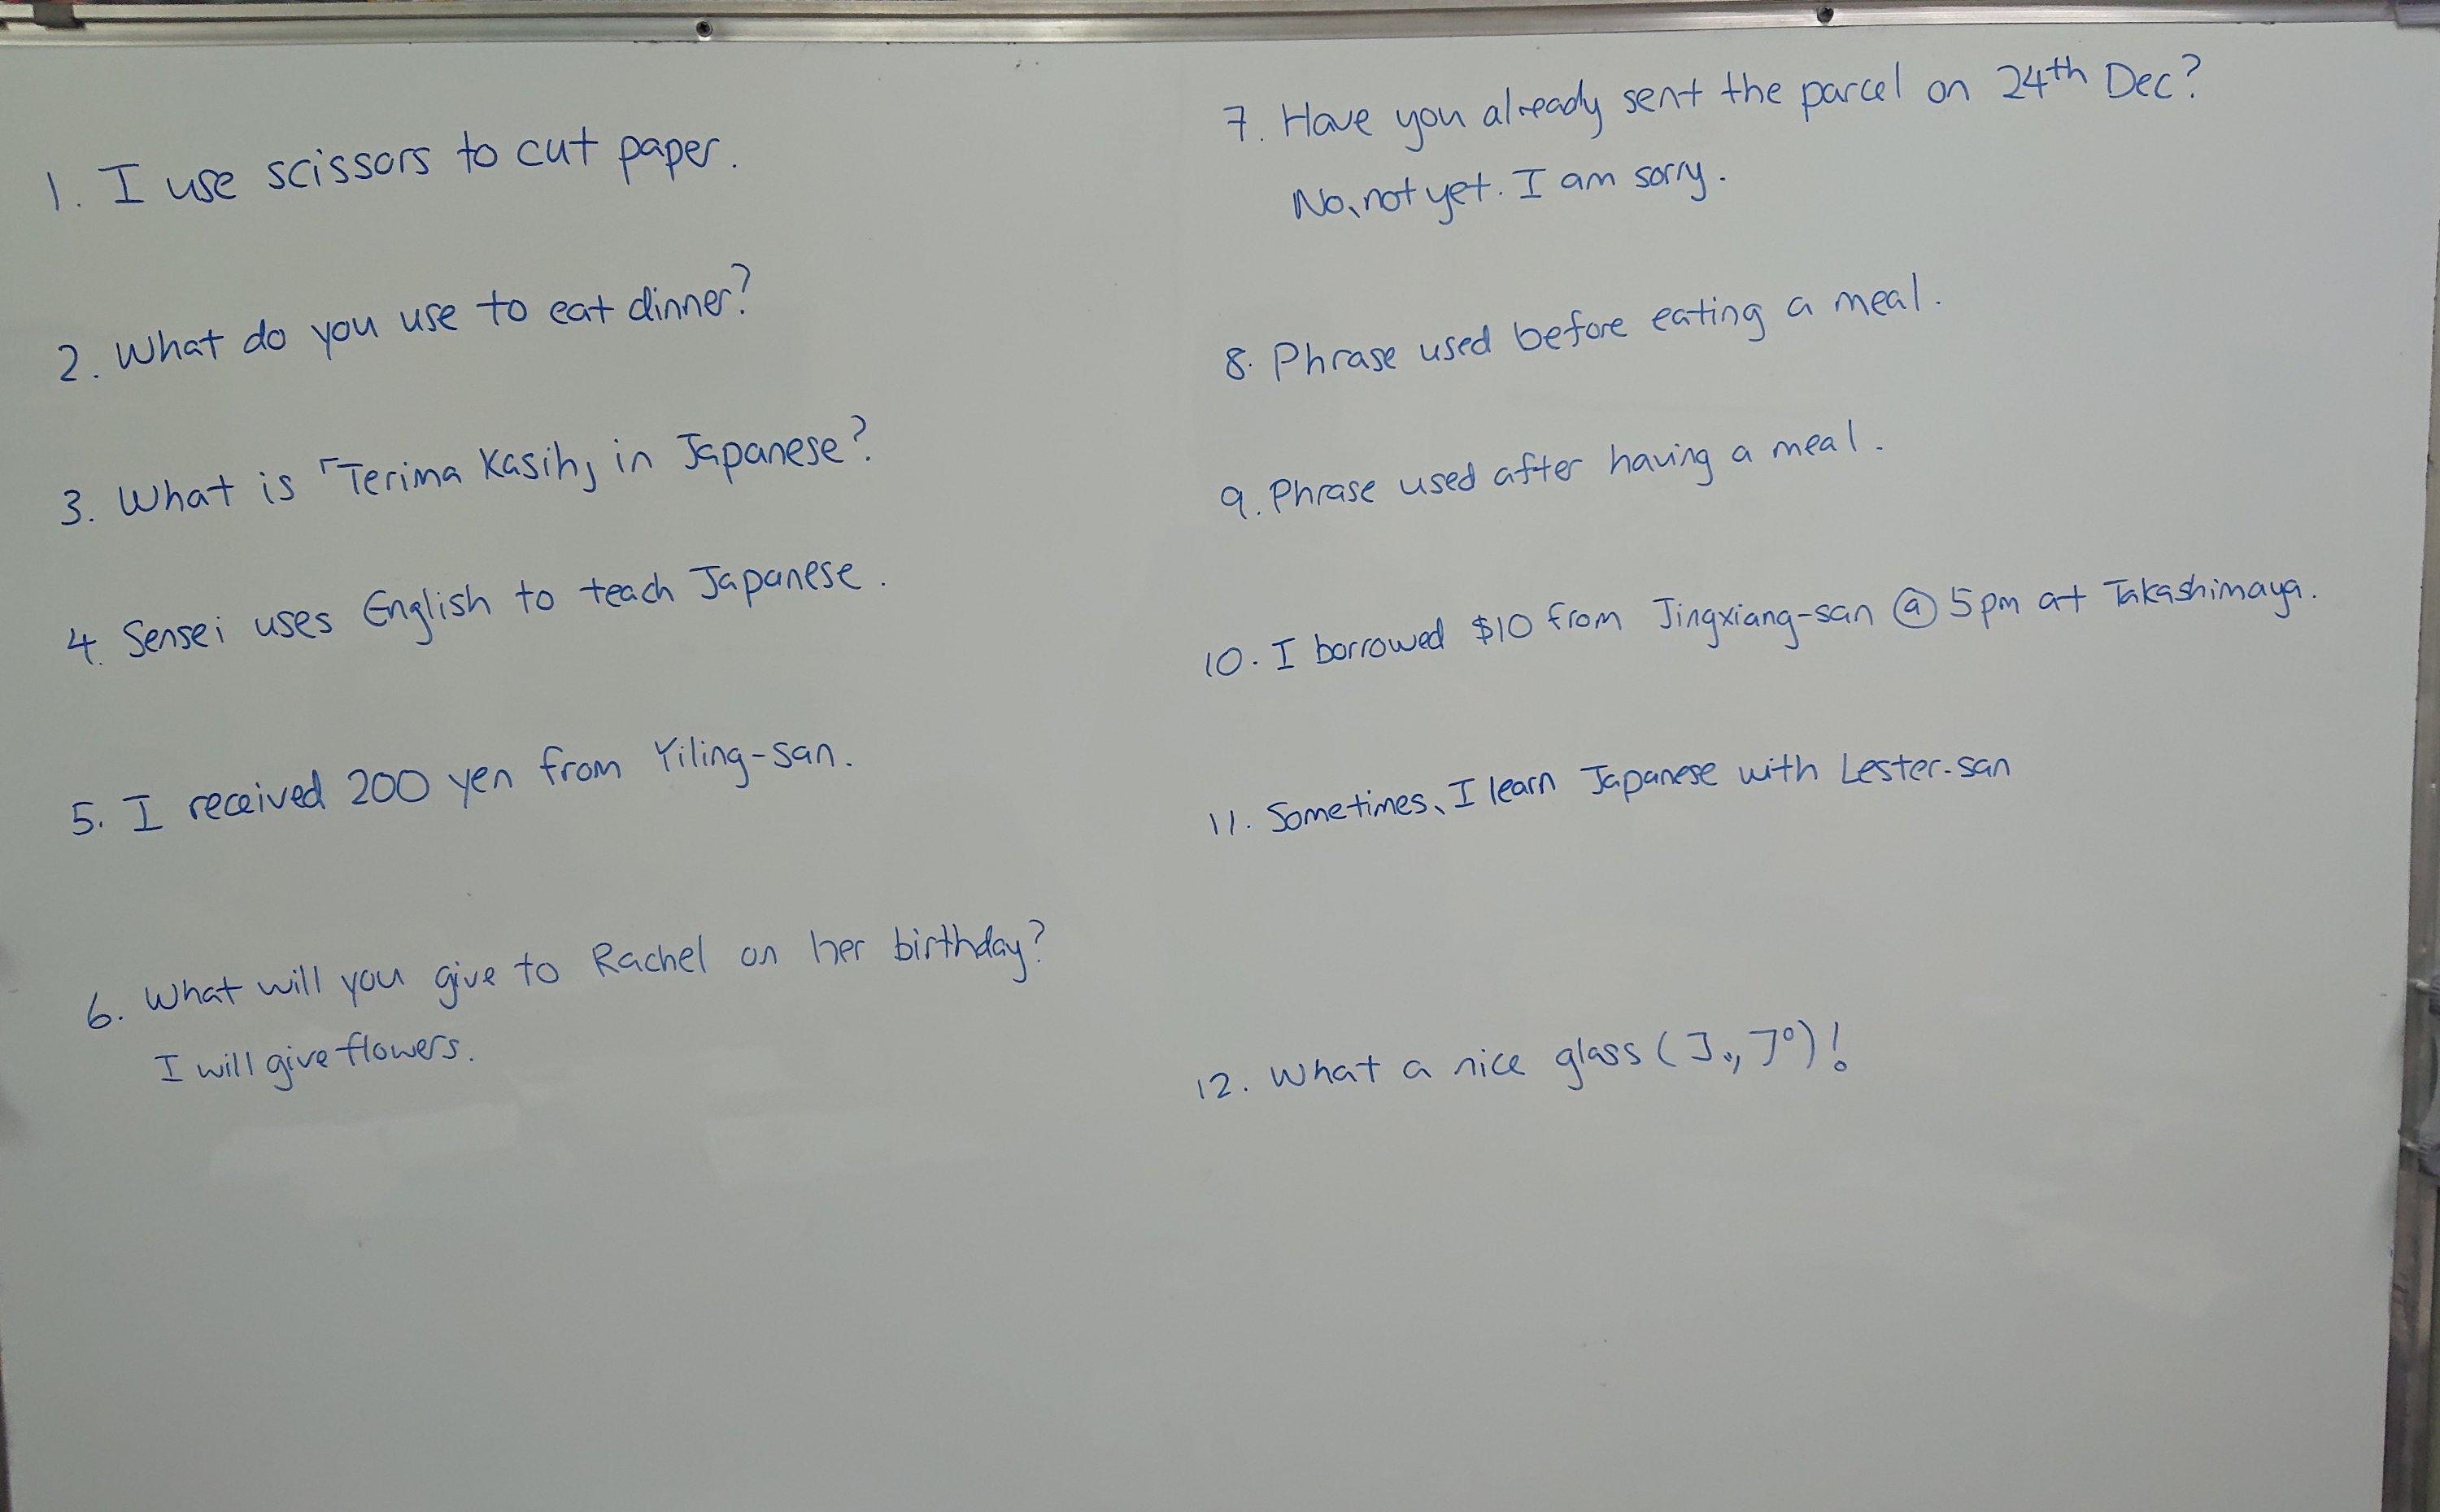 1. I use scissors to cut paper.
2. What do you use to eat dinner?
3. What is 「Terima Kasih」 in Japanese?
4. Sensei uses English to teach Japanese.
5. I received 200 yen from Yiling-san.
6. What will you give to Rachel on her birthday?
I will give flowers.
7. Have you already sent the parcel on 24th Dec?
No、not yet. I am sorry.
8. Phrase used before eating a meal.
9. Phrase used after having a meal.
10. I borrowed $10 from Jingxiang-san @ 5pm at Takashimaya.
11. Sometimes、I learn Japanese with Lester-san
12. What a nice glass (コップ)!